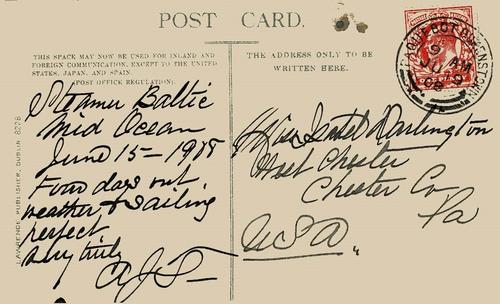 POST CARD.
THIS SPACE MAY NOW BE USED FOR INLAND AND
FOREIGN COMMUNICATION, EXCEPT TO THE UNITED
STATES, JAPAN, AND SPAIN.
(POST OFFICE REGULATION).
THE ADDRESS ONLY TO BE
WRITTEN HERE.
LAWRENCE PUBLISHER, DUBLIN
Steamer Baltic
Mid Ocean
June 15 - 19
Four days out
weather & sailing
perfect
truly
Miss Darlington
West Chester
Chester Co
Pa
USA